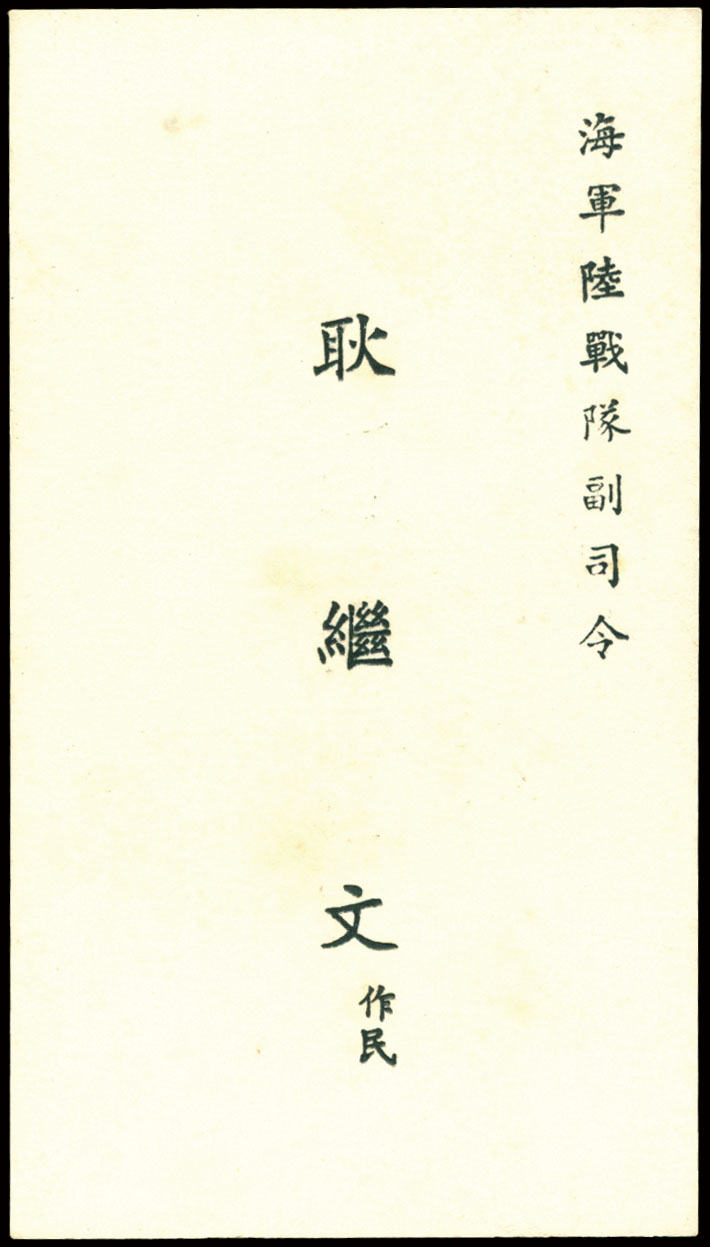 海軍陸戰隊副司令
耿繼文
作民